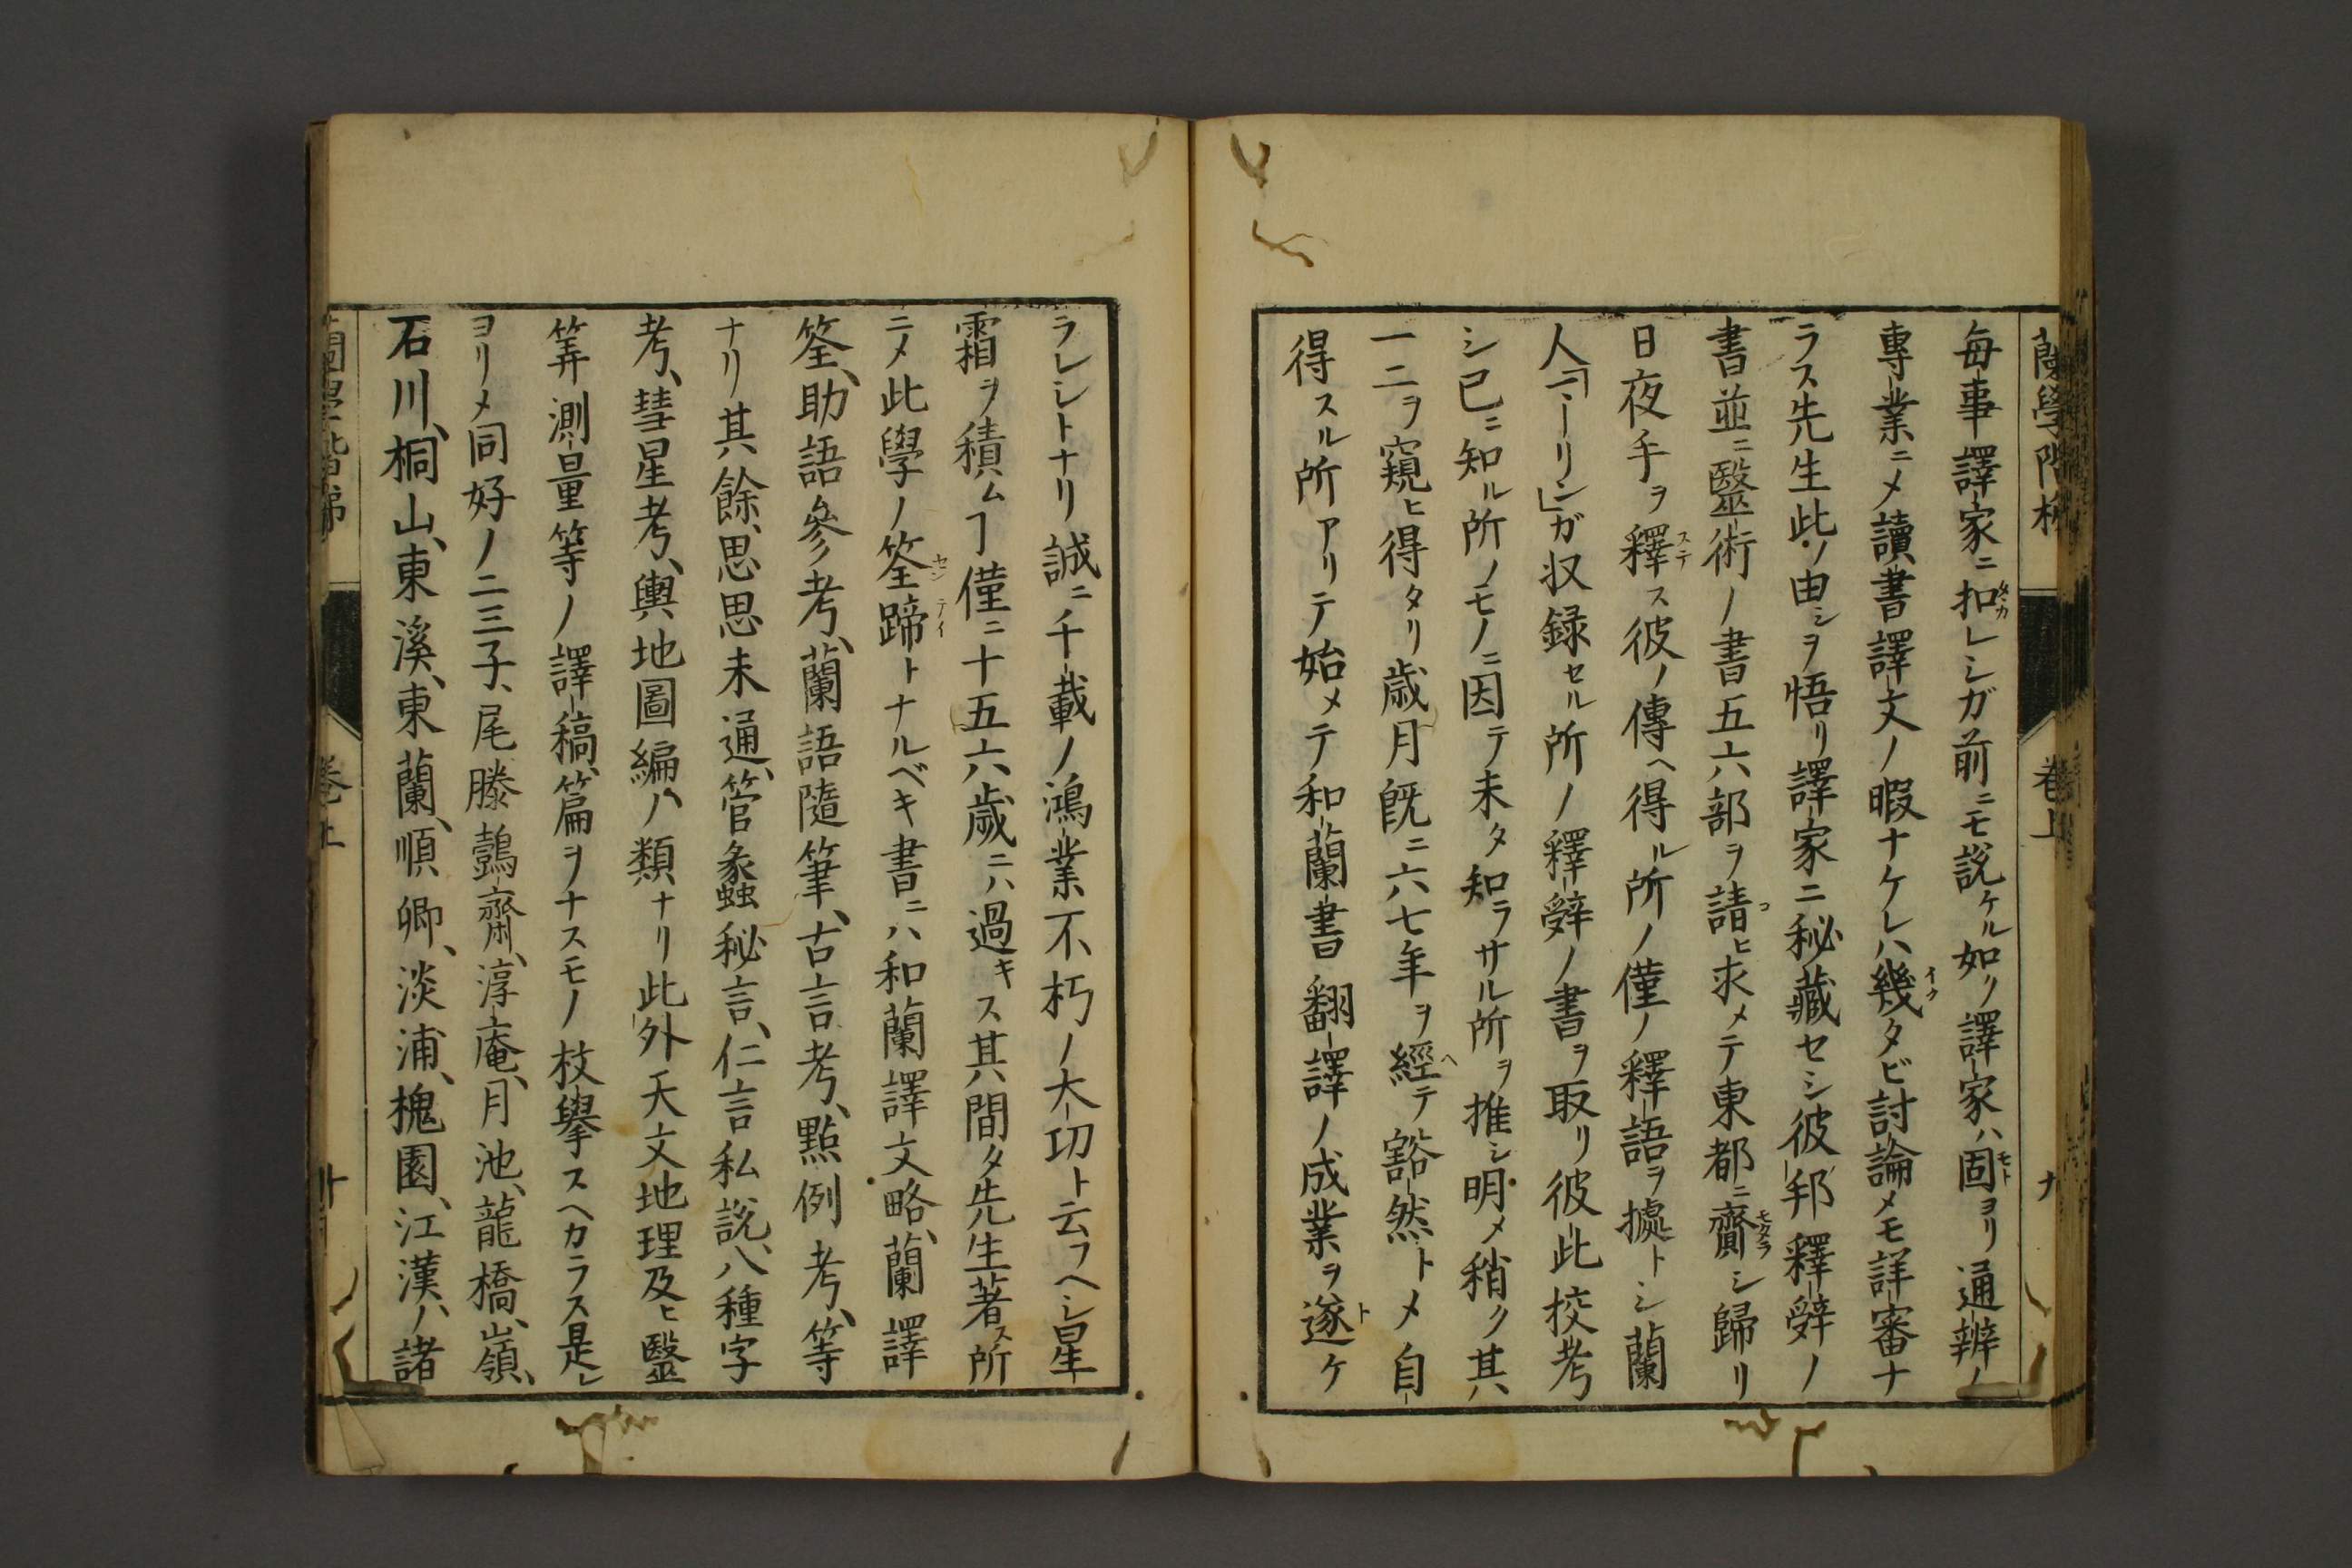 蘭學階梯
卷上
九
毎事譯家ニ扣レシガ前ニモ説ケル如ク譯家ハ固ヨリ通辨ノ
專業ニメ讀書譯文ノ暇ナケレハ幾タビ討論メモ詳審ナ
ラス先生此ノ由シヲ悟リ譯家ニ秘藏セシ彼邦釋辭ノ
書並ニ毉術ノ書五六部ヲ請ヒ求メテ東都ニ齎シ歸リ
日夜手ヲ釋ス彼ノ傳ヘ得ル所ノ僅ノ釋語ヲ據トシ蘭
人「マーリン」ガ収録セル所ノ釋辭ノ書ヲ取リ彼此挍考
シ已ニ知ル所ノモノニ因テ未タ知ラサル所ヲ推シ明メ稍ク其
一二ヲ窺ヒ得タリ歳月既ニ六七年ヲ經テ豁然トメ自
得スル所アリテ始メテ和蘭書翻譯ノ成業ヲ遂ケ
ラレシトナリ誠ニ千載ノ鴻業不朽ノ大功ト云フヘシ星
霜ヲ積ムヿ僅ニ十五六歳ニハ過キス其間タ先生著ス所
ニメ此學ノ筌蹄トナルベキ書ニハ和蘭譯文略、蘭譯
筌、助語參考、蘭語隨筆、古言考、點例考、等
ナリ其餘、思思未通、管蠡秘言、仁言私説、八種字
考、彗星考、輿地圖編ノ類ナリ此外天文地理及ヒ毉
筭測量等ノ譯稿、篇ヲナスモノ枚擧スヘカラス是レ
ヨリメ同好ノ二三子、尾滕鷧齋、淳庵、月池、龍橋、嶺、
石川、桐山、東溪、東蘭、順卿、淡浦、槐園、江漢ノ諸
蘭學階梯
卷上
十